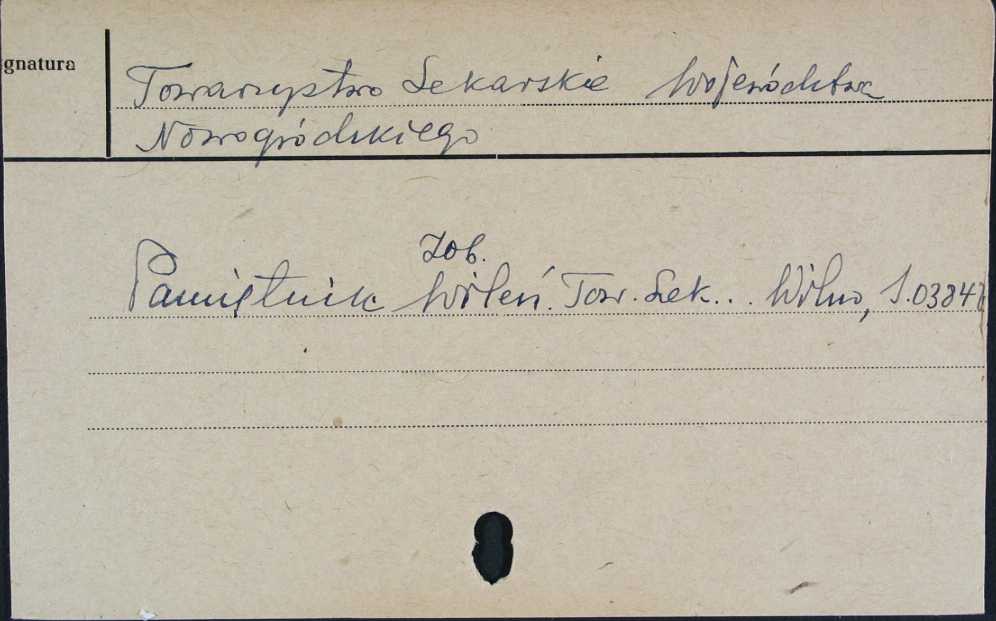 gnatura
Towarzystwo Lekarskie Województwa
Nowogródzkiego
Zob.
Pamiętnik Wileń. Tow. Lek... Wilno, S.03847